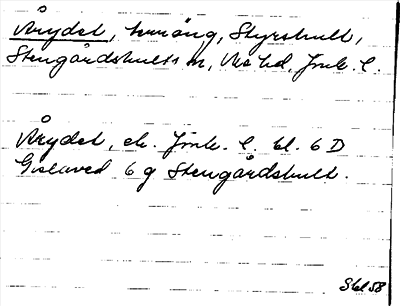 Årydet, hmäng, Styrshult,
Stengårdshults sn, Mo hd, Jönk. l.
Årydet, ek. Jönk. l. bl. 6 D
Gislaved 6 g Stengårdshult.
Skl 58